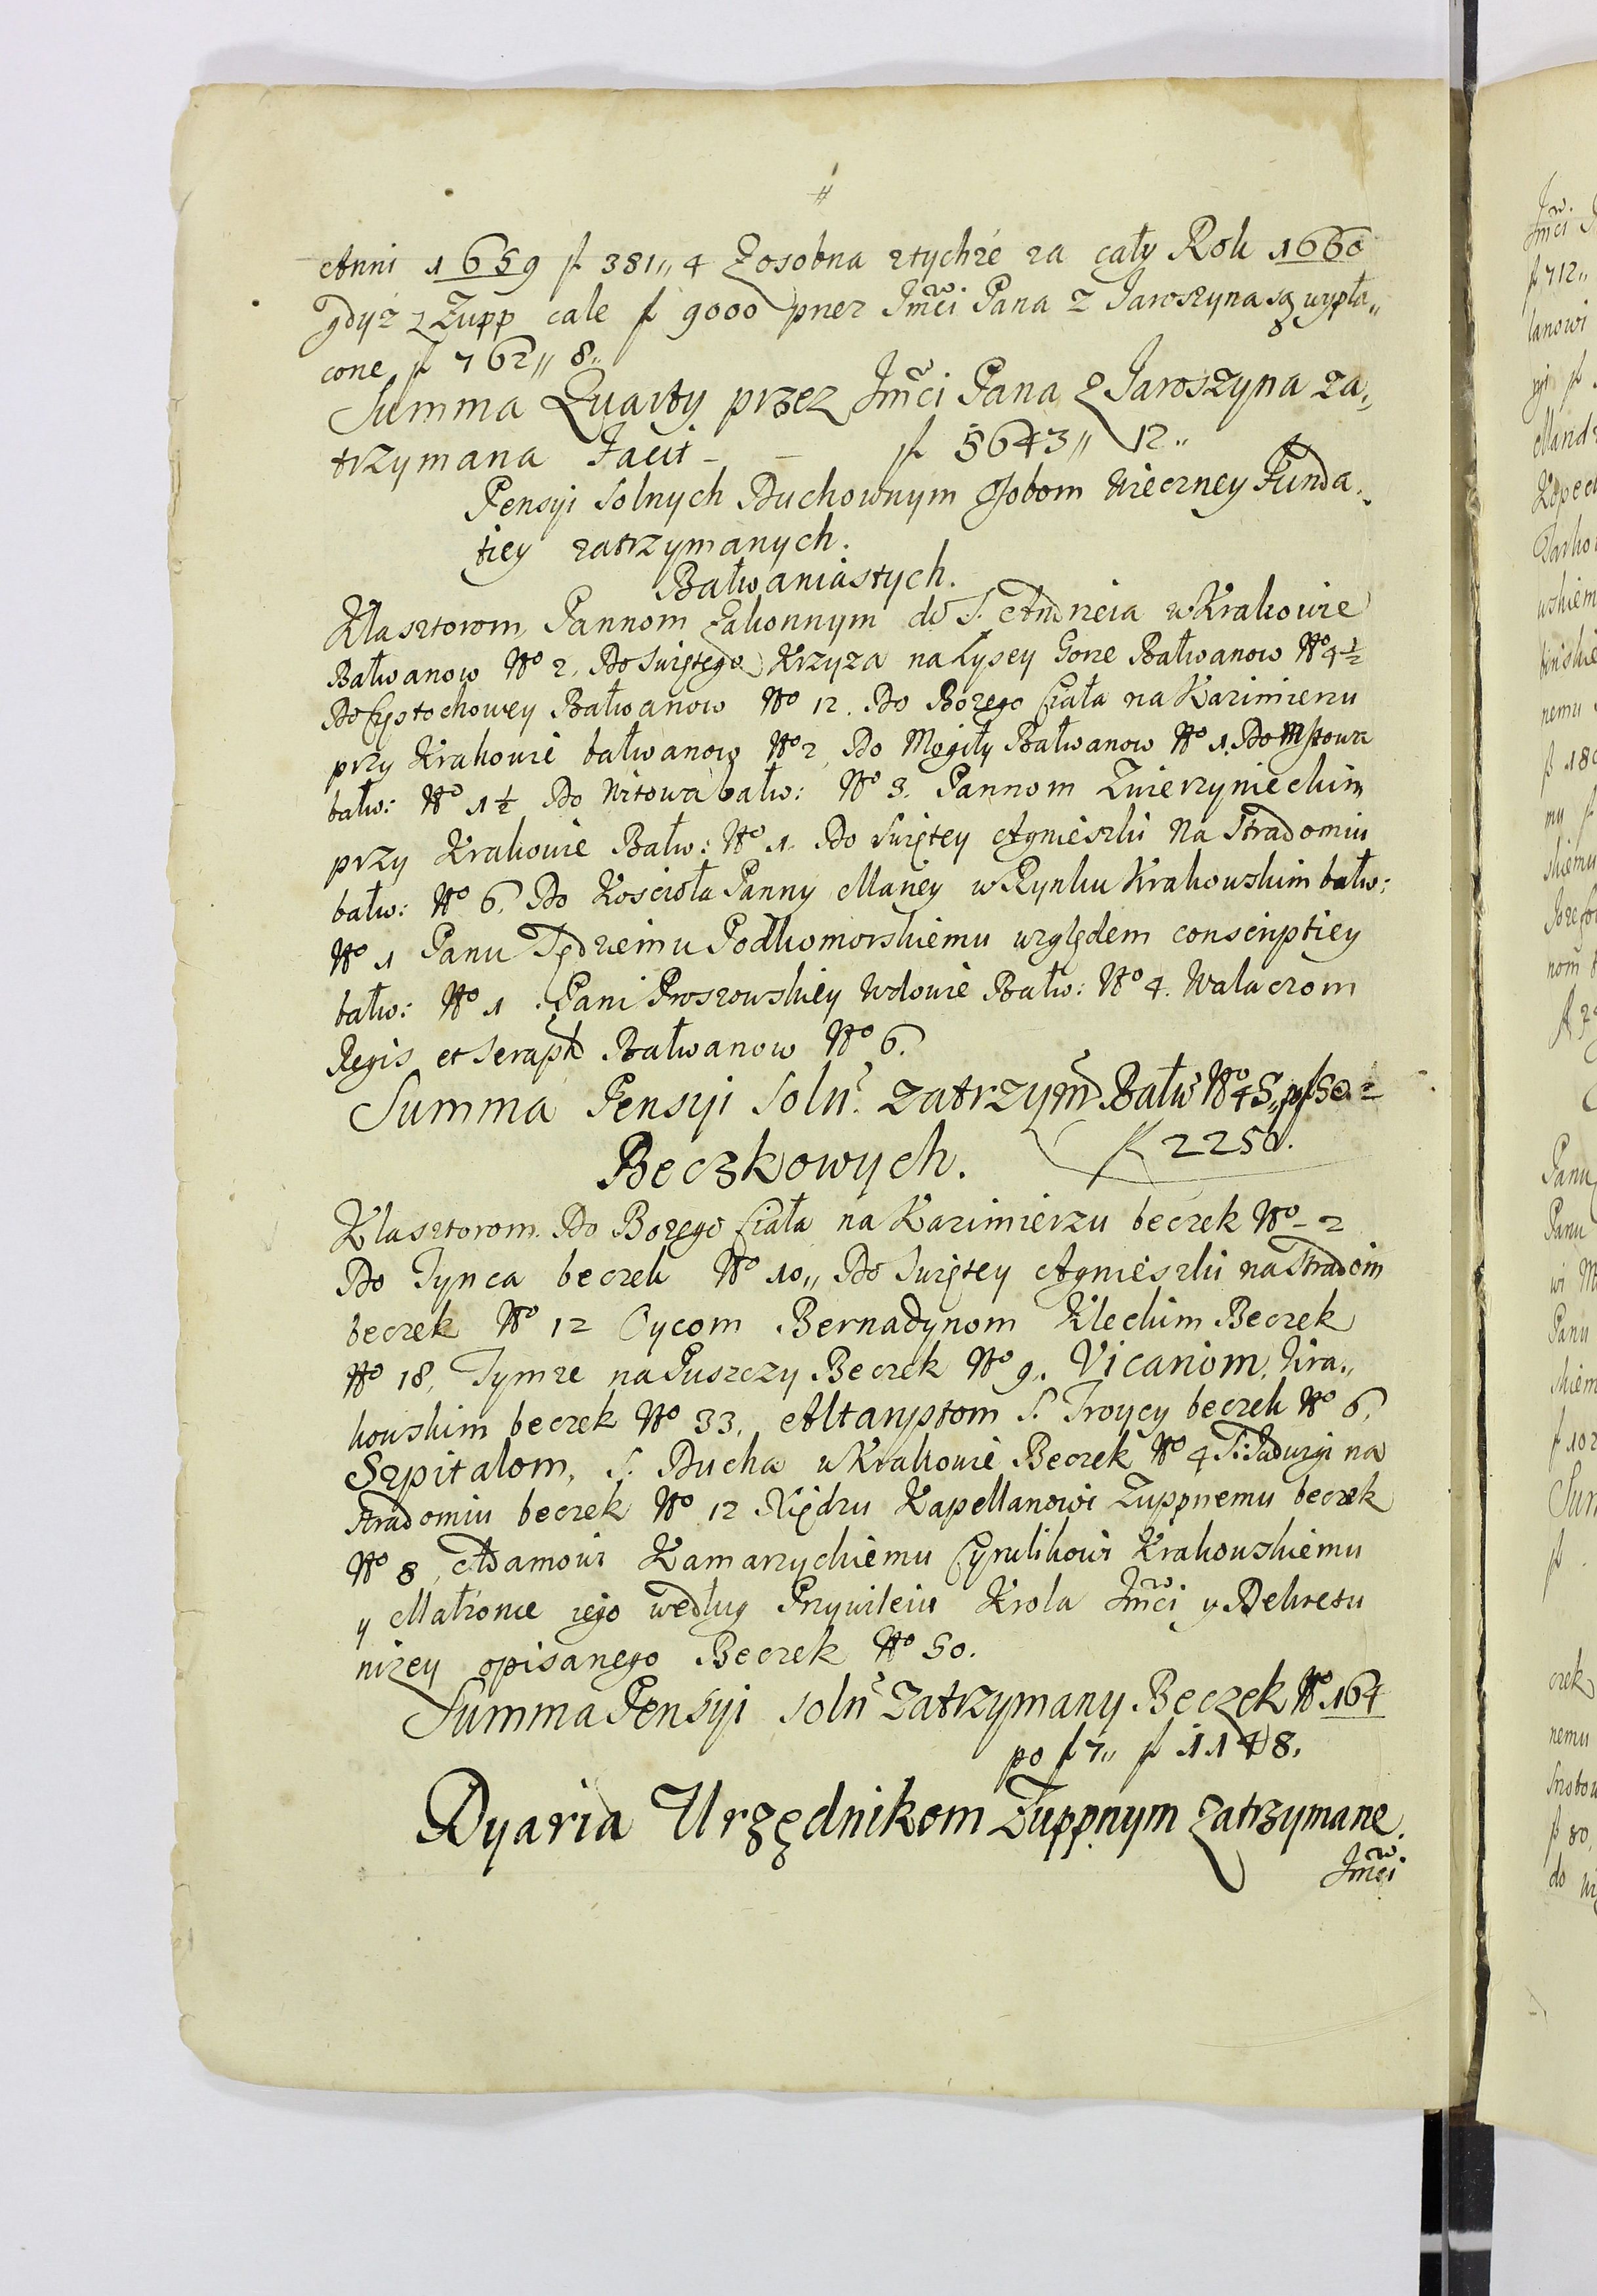 Anni 1659 f 381,, 4 Zosobna ztychże za cały Rok 1660
gdyż z Zupp cale f 9000 przez Jmci Pana z Jaroszyna są wypła,,
cone f 762,, 8,,
Summa Quarty przez Jmci Pana z Jaroszyna za,,
trzymana Facit - - f 5643,, 12,,
Pensyi Solnych Duchownym Osobom Wieczney Funda,,
tiey zatrzymanych.
Bałwaniastych.
Klasztorom, Pannom Zakonnym do S. Andrzeia w Krakowie
Bałwanow No 2, Do Swiętego Krzyza na Łysey Gorze Bałwanow No 4 1/2
Do Częstochowey Bałwanow No 12. Do Bozego Ciała na Kazimierzu
przy Krakowie bałwanow No 2, Do Mogiły Bałwanow No 1. Do Mstowa
bałw: No 1 1/2 Do Witowa bałw: No 3. Pannom Zwierzynieckim
przy Krakowie Bałw: No 1. Do Swiętey Agnieszki Na Stradomiu
bałw: No 6. Do Kościoła Panny Mariey w Rynku Krakowskim bałw:
No 1 Panu Sędziemu Podkomorskiemu względem conscriptiey
bałw: No 1 . Pani Proszowskiey Wdowie Bałw: No 4. Walaczom
Regis et Seraph Bałwanow No 6.
Summa Pensyi Soln: zatrzym Bałw No 45,, po f 50 =
f 2250.
Beczkowych.
Klasztorom. Do Bozego Ciała na Kazimierzu beczek No - 2
Do Tynca beczek No 10,, Do Swiętey Agnieszki na Stradom
beczek No 12 Oycom Bernadynom Kleckim Beczek
No 18, Tymze na Puszczy Beczek No 9. Vicariom, Kra,,
kowskim beczek No 33, Altarystom S. Troycy beczek No 6,
Szpitalom, S. Ducha w Krakowie Beczek No 4 S: Jadwigi na
Stradomiu beczek No 12 Xiędzu Kapellanowi Zuppnemu beczek
No 8, Adamowi Kamarzyckiemu Cyrulikowi Krakowskiemu
y Małzonce iego według Przywileiu Krola Jmci y Dekretu
nizey opisanego Beczek No 50.
Summa Pensyi soln Zatrzymany Beczek No 164
po f 7,, f 1148.
Dyaria Urzędnikom Zuppnym zatrzymane.
Jmci